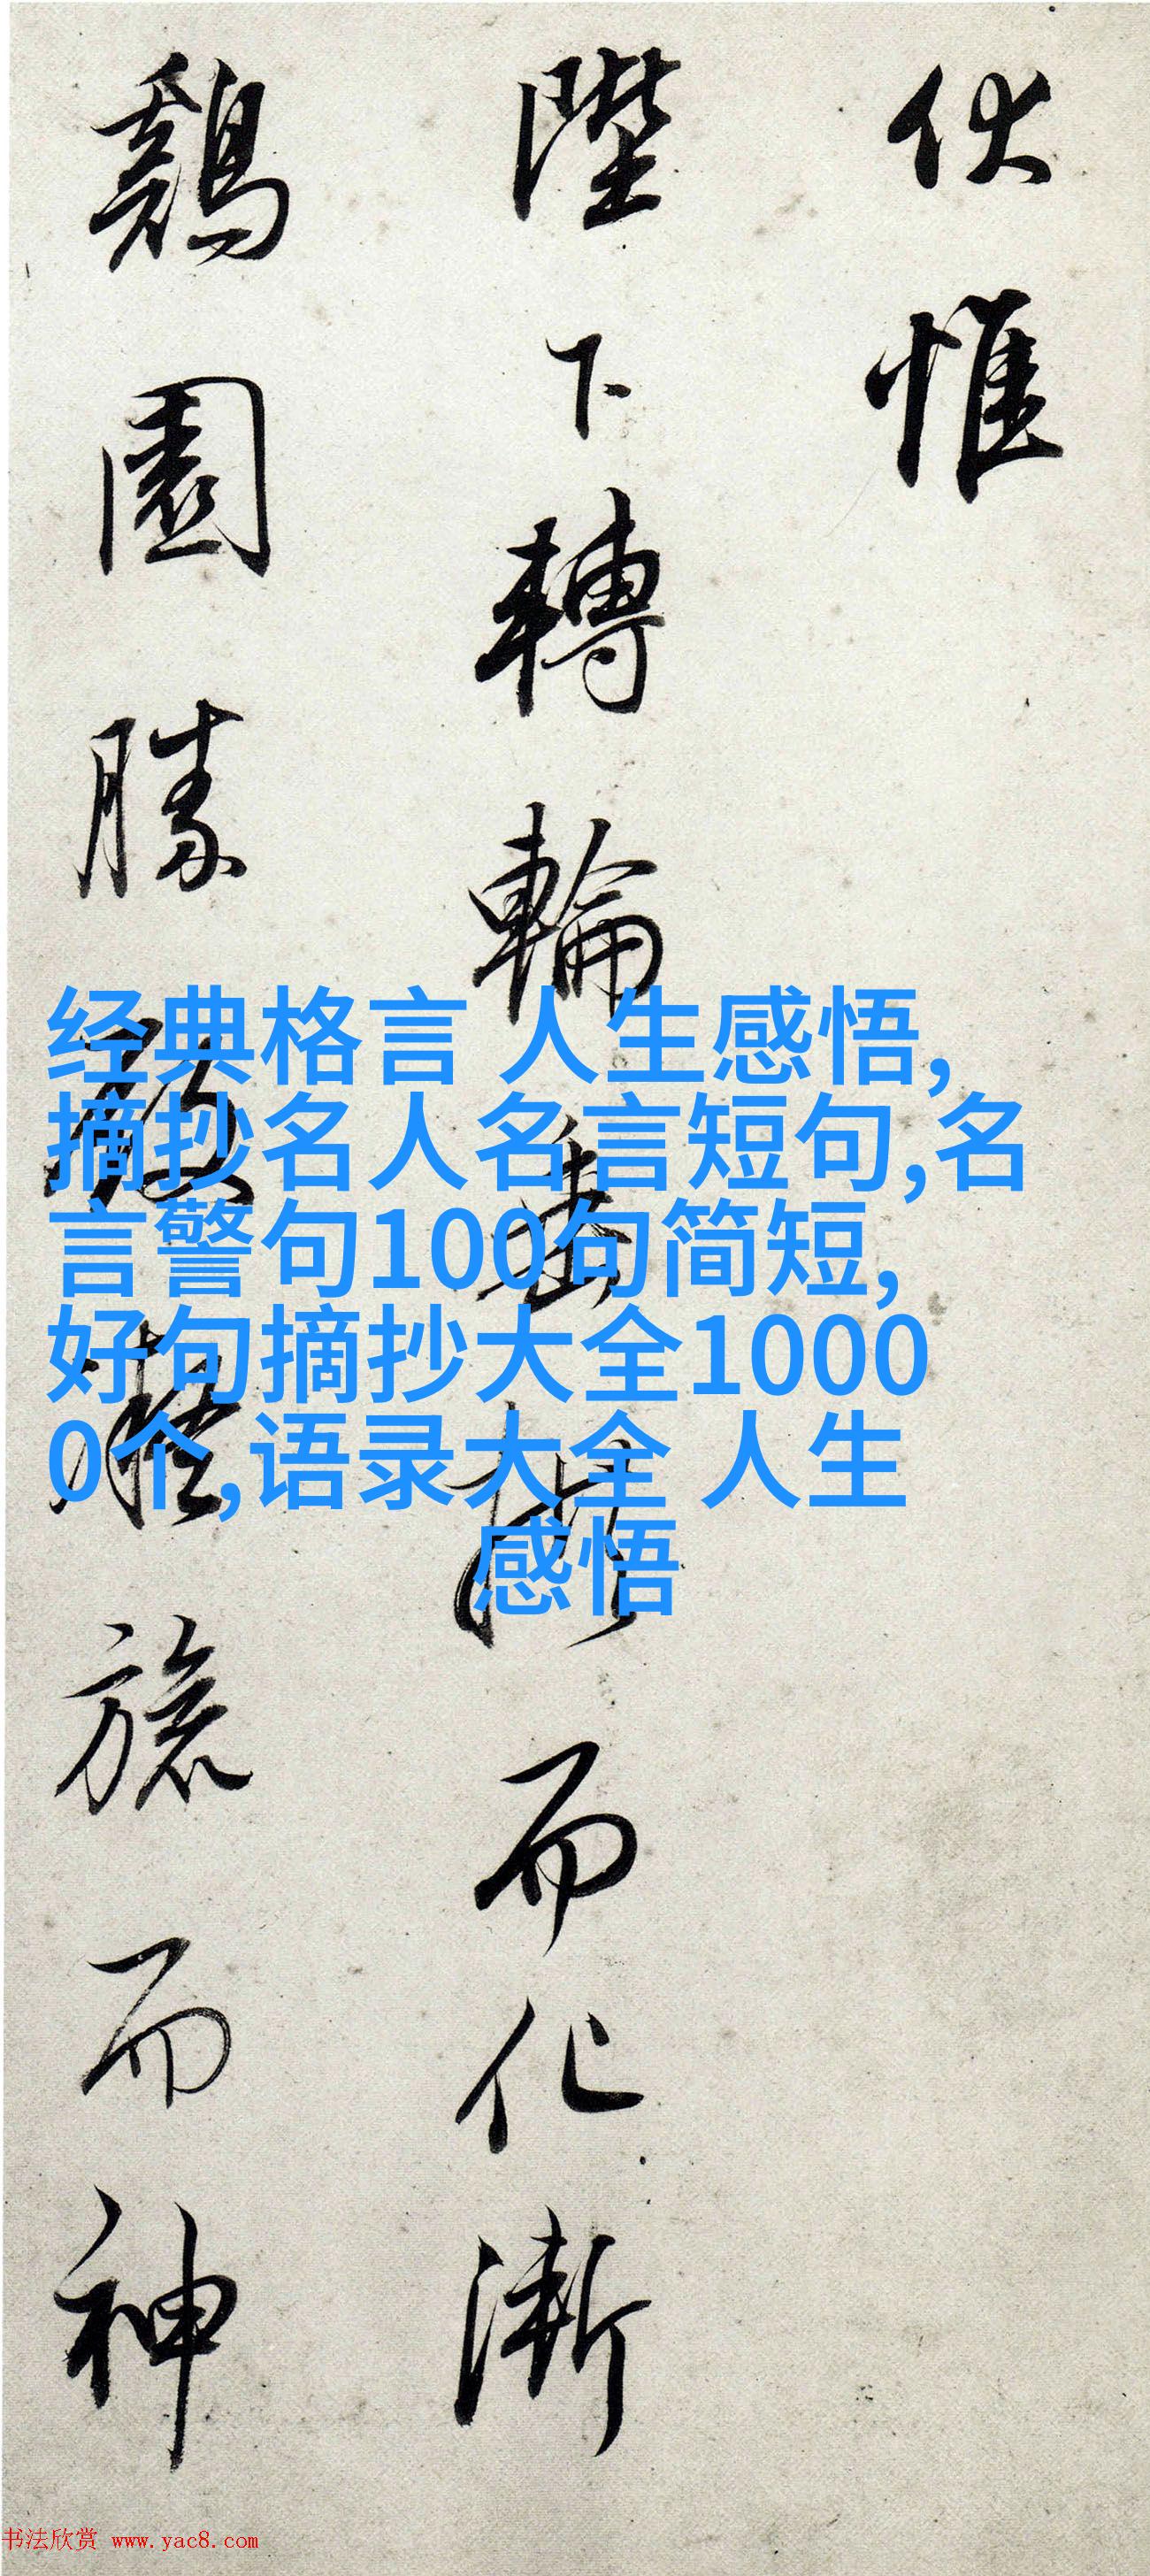 伏惟
陛下轉輪垂拱而化漸
鷄園勝殿凝旒而神
经典格言 人生感悟,
摘抄名人名言短句,名
言警句100句简短,
好句摘抄大全1000
0个,语录大全 人生
感悟
书法欣赏 www.yac8.com